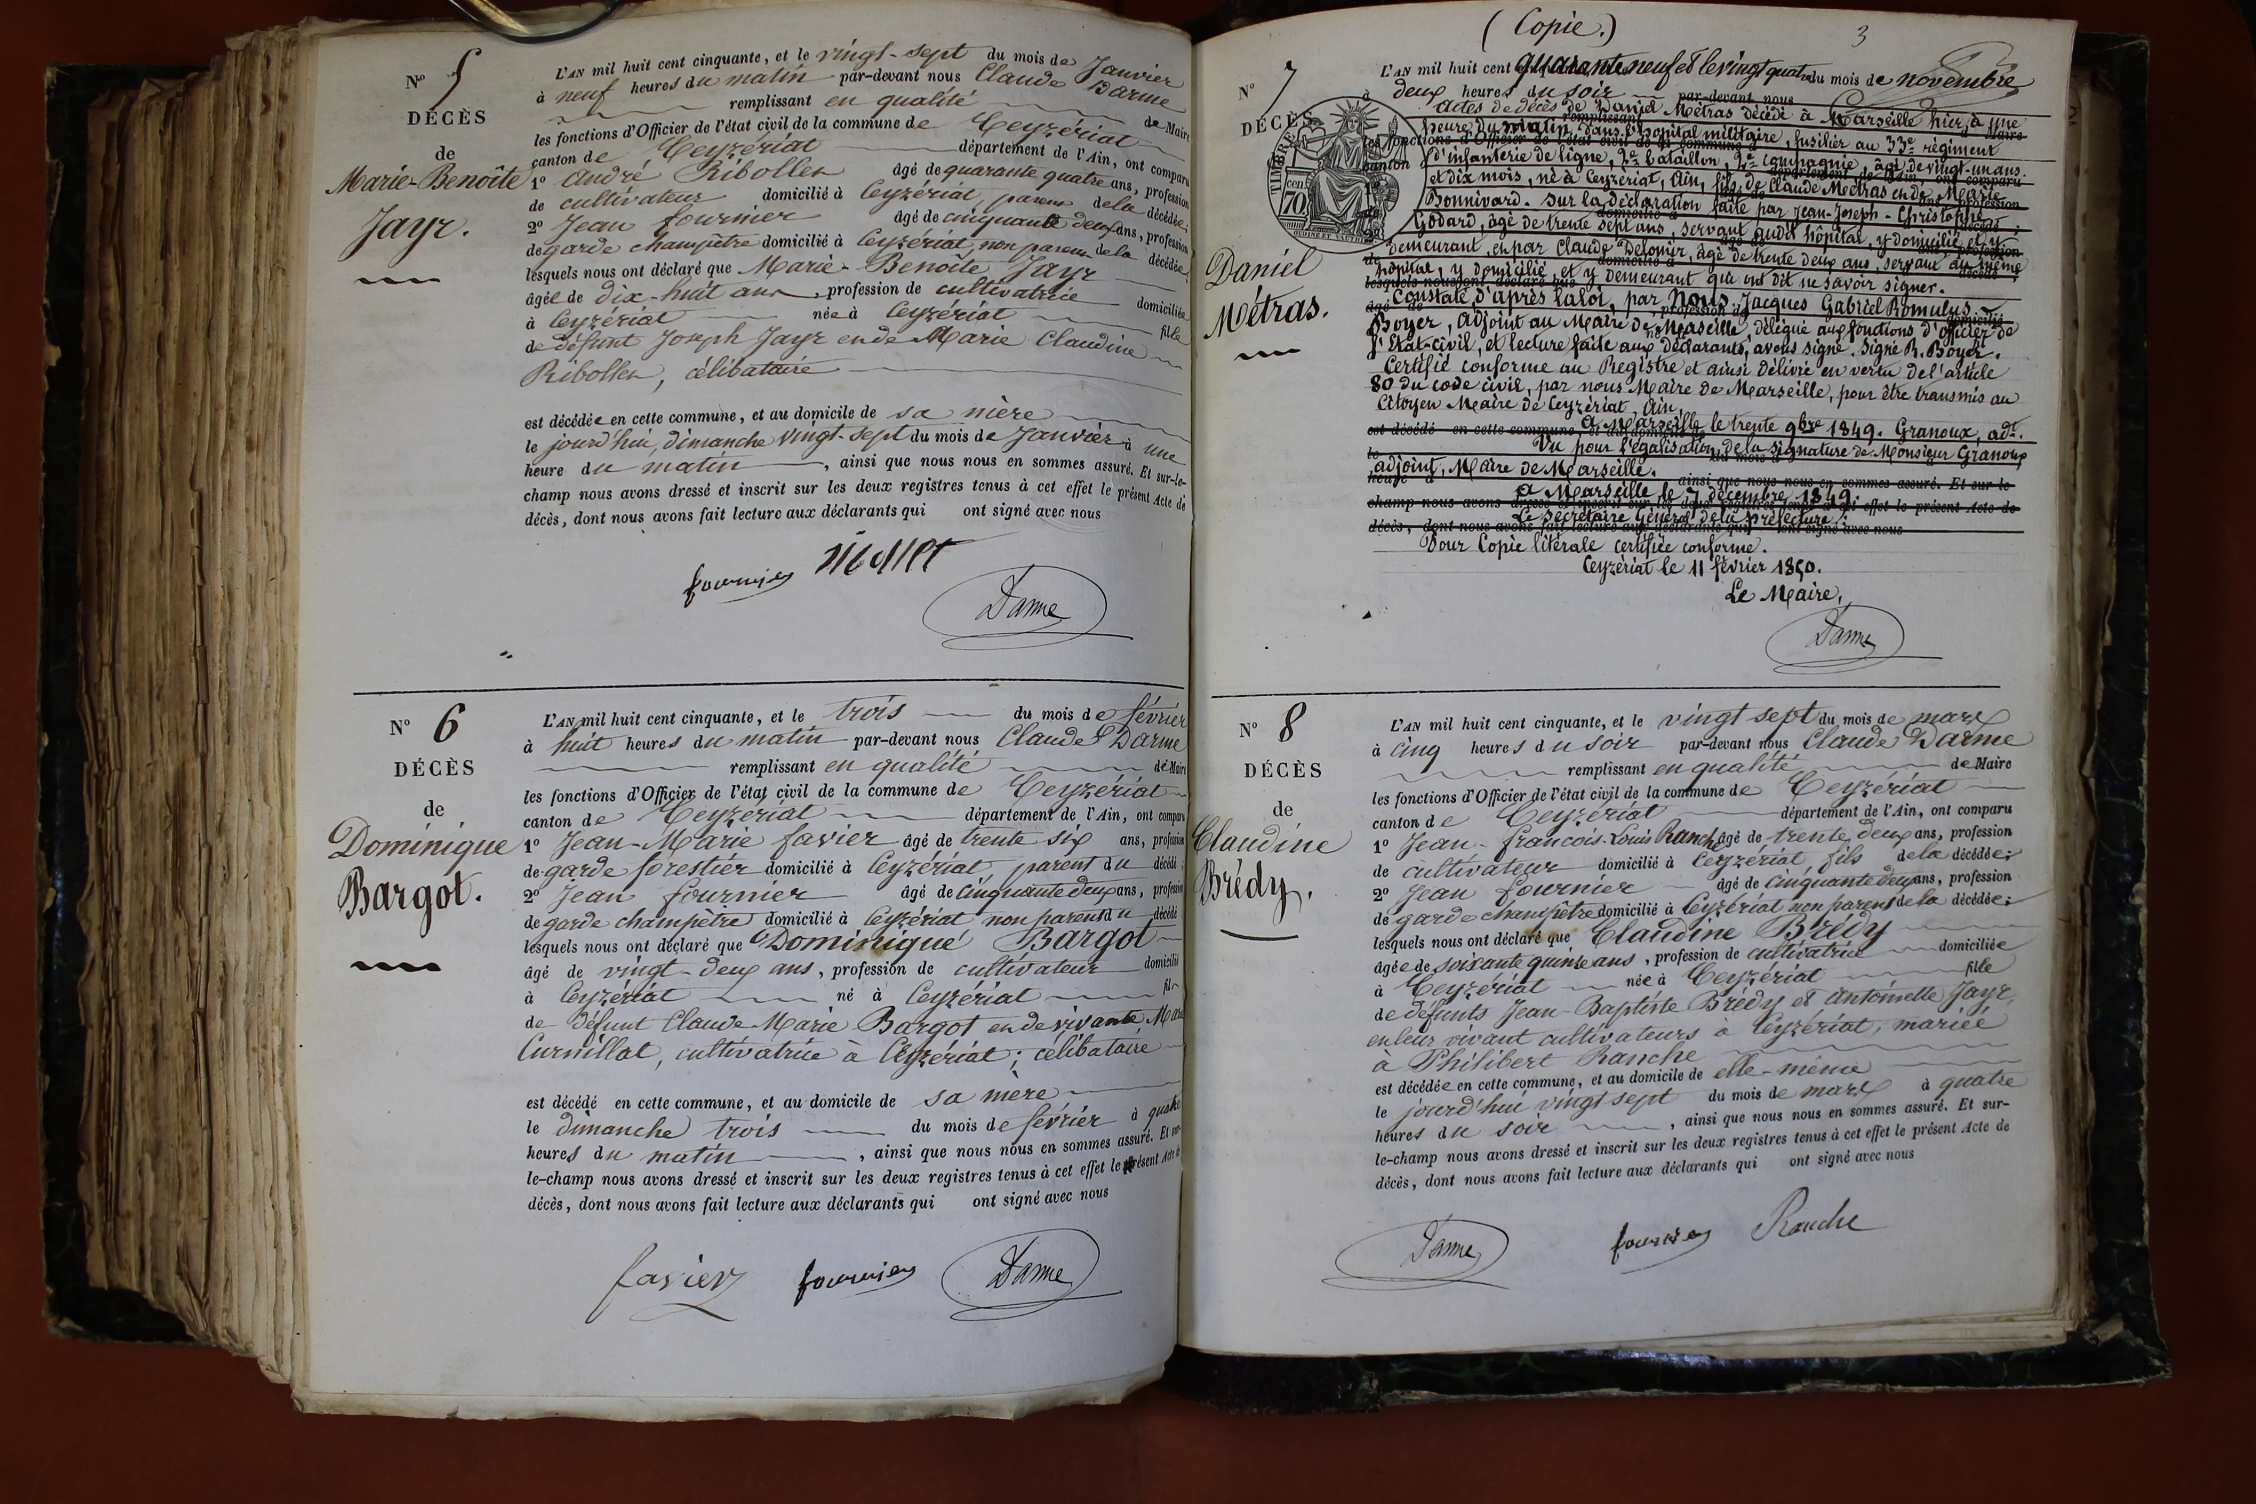 N° 5
DÉCÈS
de
Marie-Benoîte
Jayr.
L'AN mil huit cent cinquante, et le vingt-sept du mois de Janvier
à neuf heures du matin par-devant nous Claude Darme
remplissant en qualité de Maire
les fonctions d'Officier de l'état civil de la commune de Ceyzériat
canton de Ceyzériat département de l'Ain, ont comparu
1° André Ribollet âgé de quarante quatre ans, profession
de cultivateur domicilié à Ceyzériat, parent de la décédée;
2° Jean fournier âgé de cinquante deux ans, profession
de garde champêtre domicilié à Ceyzériat, non parent de la décédée;
lesquels nous ont déclaré que Marie-Benoîte Jayr
âgée de dix-huit ans, profession de cultivatrice domiciliée
à Ceyzériat née à Ceyzériat fille
de défunt Joseph Jayr et de Marie Claudine
Ribollet, célibataire
est décédée en cette commune, et au domicile de sa mère
le jourd'hui, dimanche vingt-sept du mois de Janvier à une
heure du matin, ainsi que nous nous en sommes assuré. Et sur-le-
champ nous avons dressé et inscrit sur les deux registres tenus à cet effet le présent Acte de
décès, dont nous avons fait lecture aux déclarants qui ont signé avec nous
fournier Darme
N° 6
DÉCÈS
de
Dominique
Bargot.
L'AN mil huit cent cinquante, et le trois du mois de février
à huit heures du matin par-devant nous Claude Darme
remplissant en qualité de Maire
les fonctions d'Officier de l'état civil de la commune de Ceyzériat
canton de Ceyzériat département de l'Ain, ont comparu
1° Jean-Marie favier âgé de trente six ans, profession
de garde forestier domicilié à Ceyzériat, parent du décédé;
2° Jean fournier âgé de cinquante deux ans, profession
de garde champêtre domicilié à Ceyzériat non parent du décédé
lesquels nous ont déclaré que Dominique Bargot
âgé de vingt-deux ans, profession de cultivateur domicilié
à Ceyzériat né à Ceyzériat fils
de défunt Claude-Marie Bargot et de vivante Marie
Curnillat, cultivatrice à Ceyzériat; célibataire
est décédé en cette commune, et au domicile de sa mère
le dimanche trois du mois de février à quatre
heures du matin, ainsi que nous nous en sommes assuré. Et sur-
le-champ nous avons dressé et inscrit sur les deux registres tenus à cet effet le présent Acte de
décès, dont nous avons fait lecture aux déclarants qui ont signé avec nous
favier fournier Darme
(Copie.) 3
N° 7
DÉCÈS
TIMBRE
70 cen
Daniel
Métras.
L'AN mil huit cent quarante neuf et le vingt quatre du mois de novembre
à deux heures du soir par-devant nous
Actes de décès de Daniel Métras décédé à Marseille hier, à une
heure du matin, dans l'hôpital militaire, fusilier au 33e régiment
d'infanterie de ligne, 2e bataillon, 2e compagnie, âgé de vingt-un ans
et dix mois, né à Ceyzériat, Ain, fils de Claude Métras et de Marie
Bonnivard. Sur la déclaration faite par Jean-Joseph-Christophe
Godard, âgé de trente sept ans, servant audit hôpital, y domicilié et y
demeurant, et par Claude Delomir, âgé de trente deux ans, servant au même
hôpital, y domicilié et y demeurant qui ont dit ne savoir signer.
Constaté d'après la loi, par Nous, Jacques Gabriel Romulus
Boyer, adjoint au Maire de Marseille, délégué aux fonctions d'officier de
l'Etat-civil, et lecture faite aux déclarants, avons signé. Signé R. Boyer.
Certifié conforme au Registre et ainsi délivré en vertu de l'article
80 du code civil, par nous Maire de Marseille, pour être transmis au
Citoyen Maire de Ceyzériat, Ain.
A Marseille le trente 9bre 1849. Granoux, adt.
Vu pour légalisation de la signature de Monsieur Granoux
adjoint, Maire de Marseille.
A Marseille le 7 décembre 1849.
Le Secrétaire Général de la préfecture.
Pour Copie litérale certifiée conforme.
Ceyzériat le 11 février 1850.
Le Maire,
Darme
N° 8
DÉCÈS
de
Claudine
Brédy.
L'AN mil huit cent cinquante, et le vingt sept du mois de mars
à cinq heures du soir par-devant nous Claude Darme
remplissant en qualité de Maire
les fonctions d'Officier de l'état civil de la commune de Ceyzériat
canton de Ceyzériat département de l'Ain, ont comparu
1° Jean-francois-Louis Ranche âgé de trente deux ans, profession
de cultivateur domicilié à Ceyzériat, fils de la décédée;
2° Jean fournier âgé de cinquante deux ans, profession
de garde champêtre domicilié à Ceyzériat non parent de la décédée;
lesquels nous ont déclaré que Claudine Brédy
âgée de soixante quinte ans, profession de cultivatrice domiciliée
à Ceyzériat née à Ceyzériat fille
de défunts Jean-Baptiste Brédy et Antoinette Jayr,
en leur vivant cultivateurs à Ceyzériat, mariée
à Philibert Ranche
est décédée en cette commune, et au domicile de elle-même
le jourd'hui vingt sept du mois de mars à quatre
heures du soir, ainsi que nous nous en sommes assuré. Et sur-
le-champ nous avons dressé et inscrit sur les deux registres tenus à cet effet le présent Acte de
décès, dont nous avons fait lecture aux déclarants qui ont signé avec nous
Darme fournier Ranche